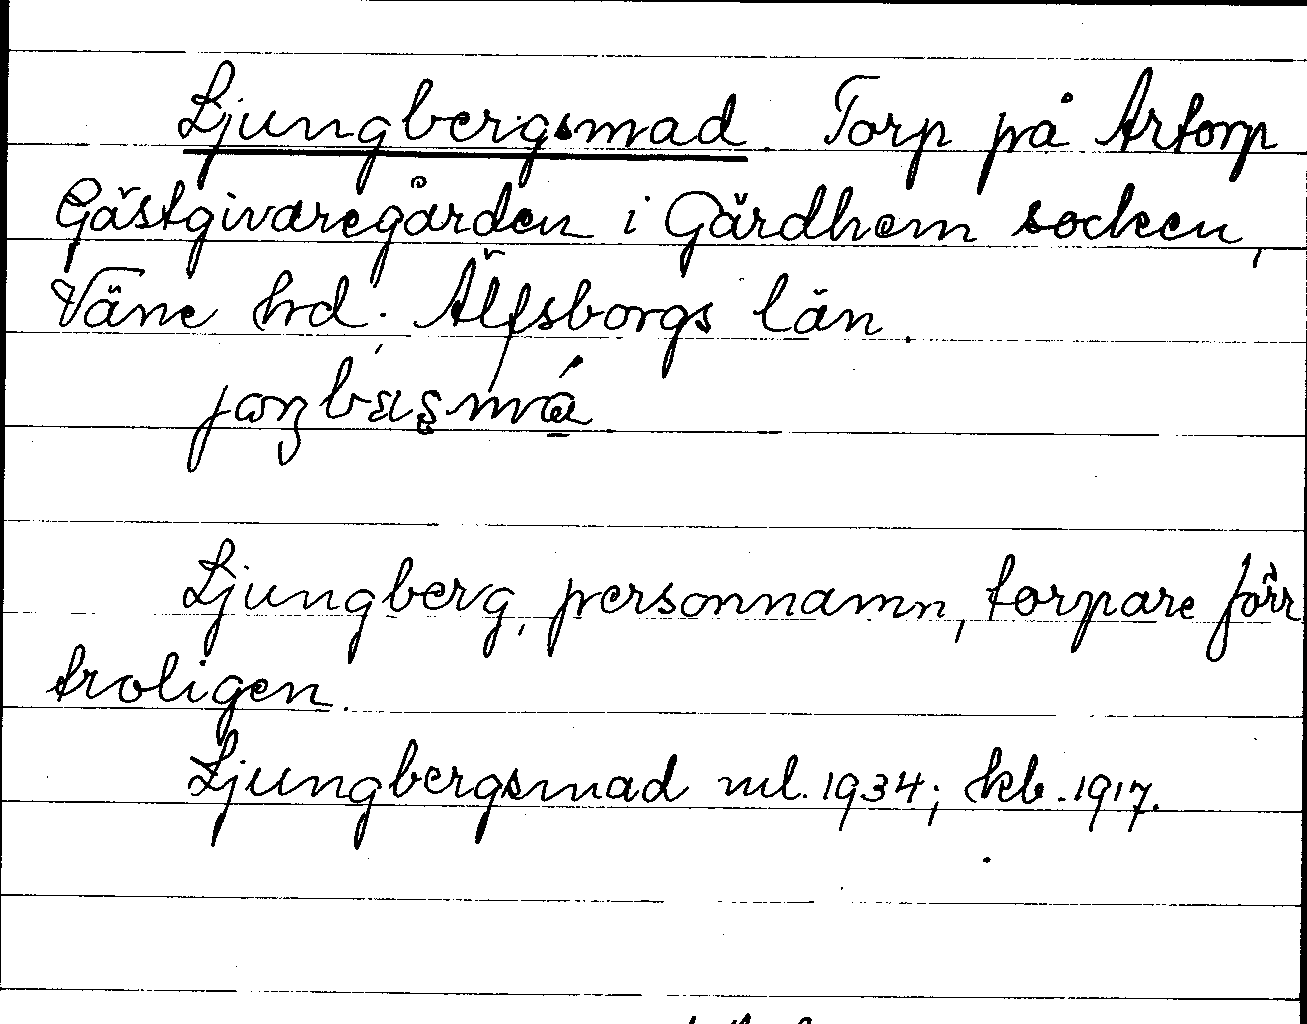 Ljungbergsmad. Torp på Artorp
Gästgivaregården i Gärdhem socken,
Väne hrd. Älfsborgs län.
Ljungberg, personnamn, torpare förr
troligen.
Ljungbergsmad ml. 1934; kb. 1917.